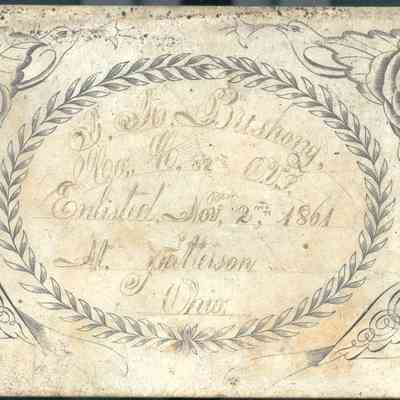 J. K. Bushong,
Co. K. 32nd OVI
Enlisted Nov. 2nd, 1861
At Patterson
Ohio.